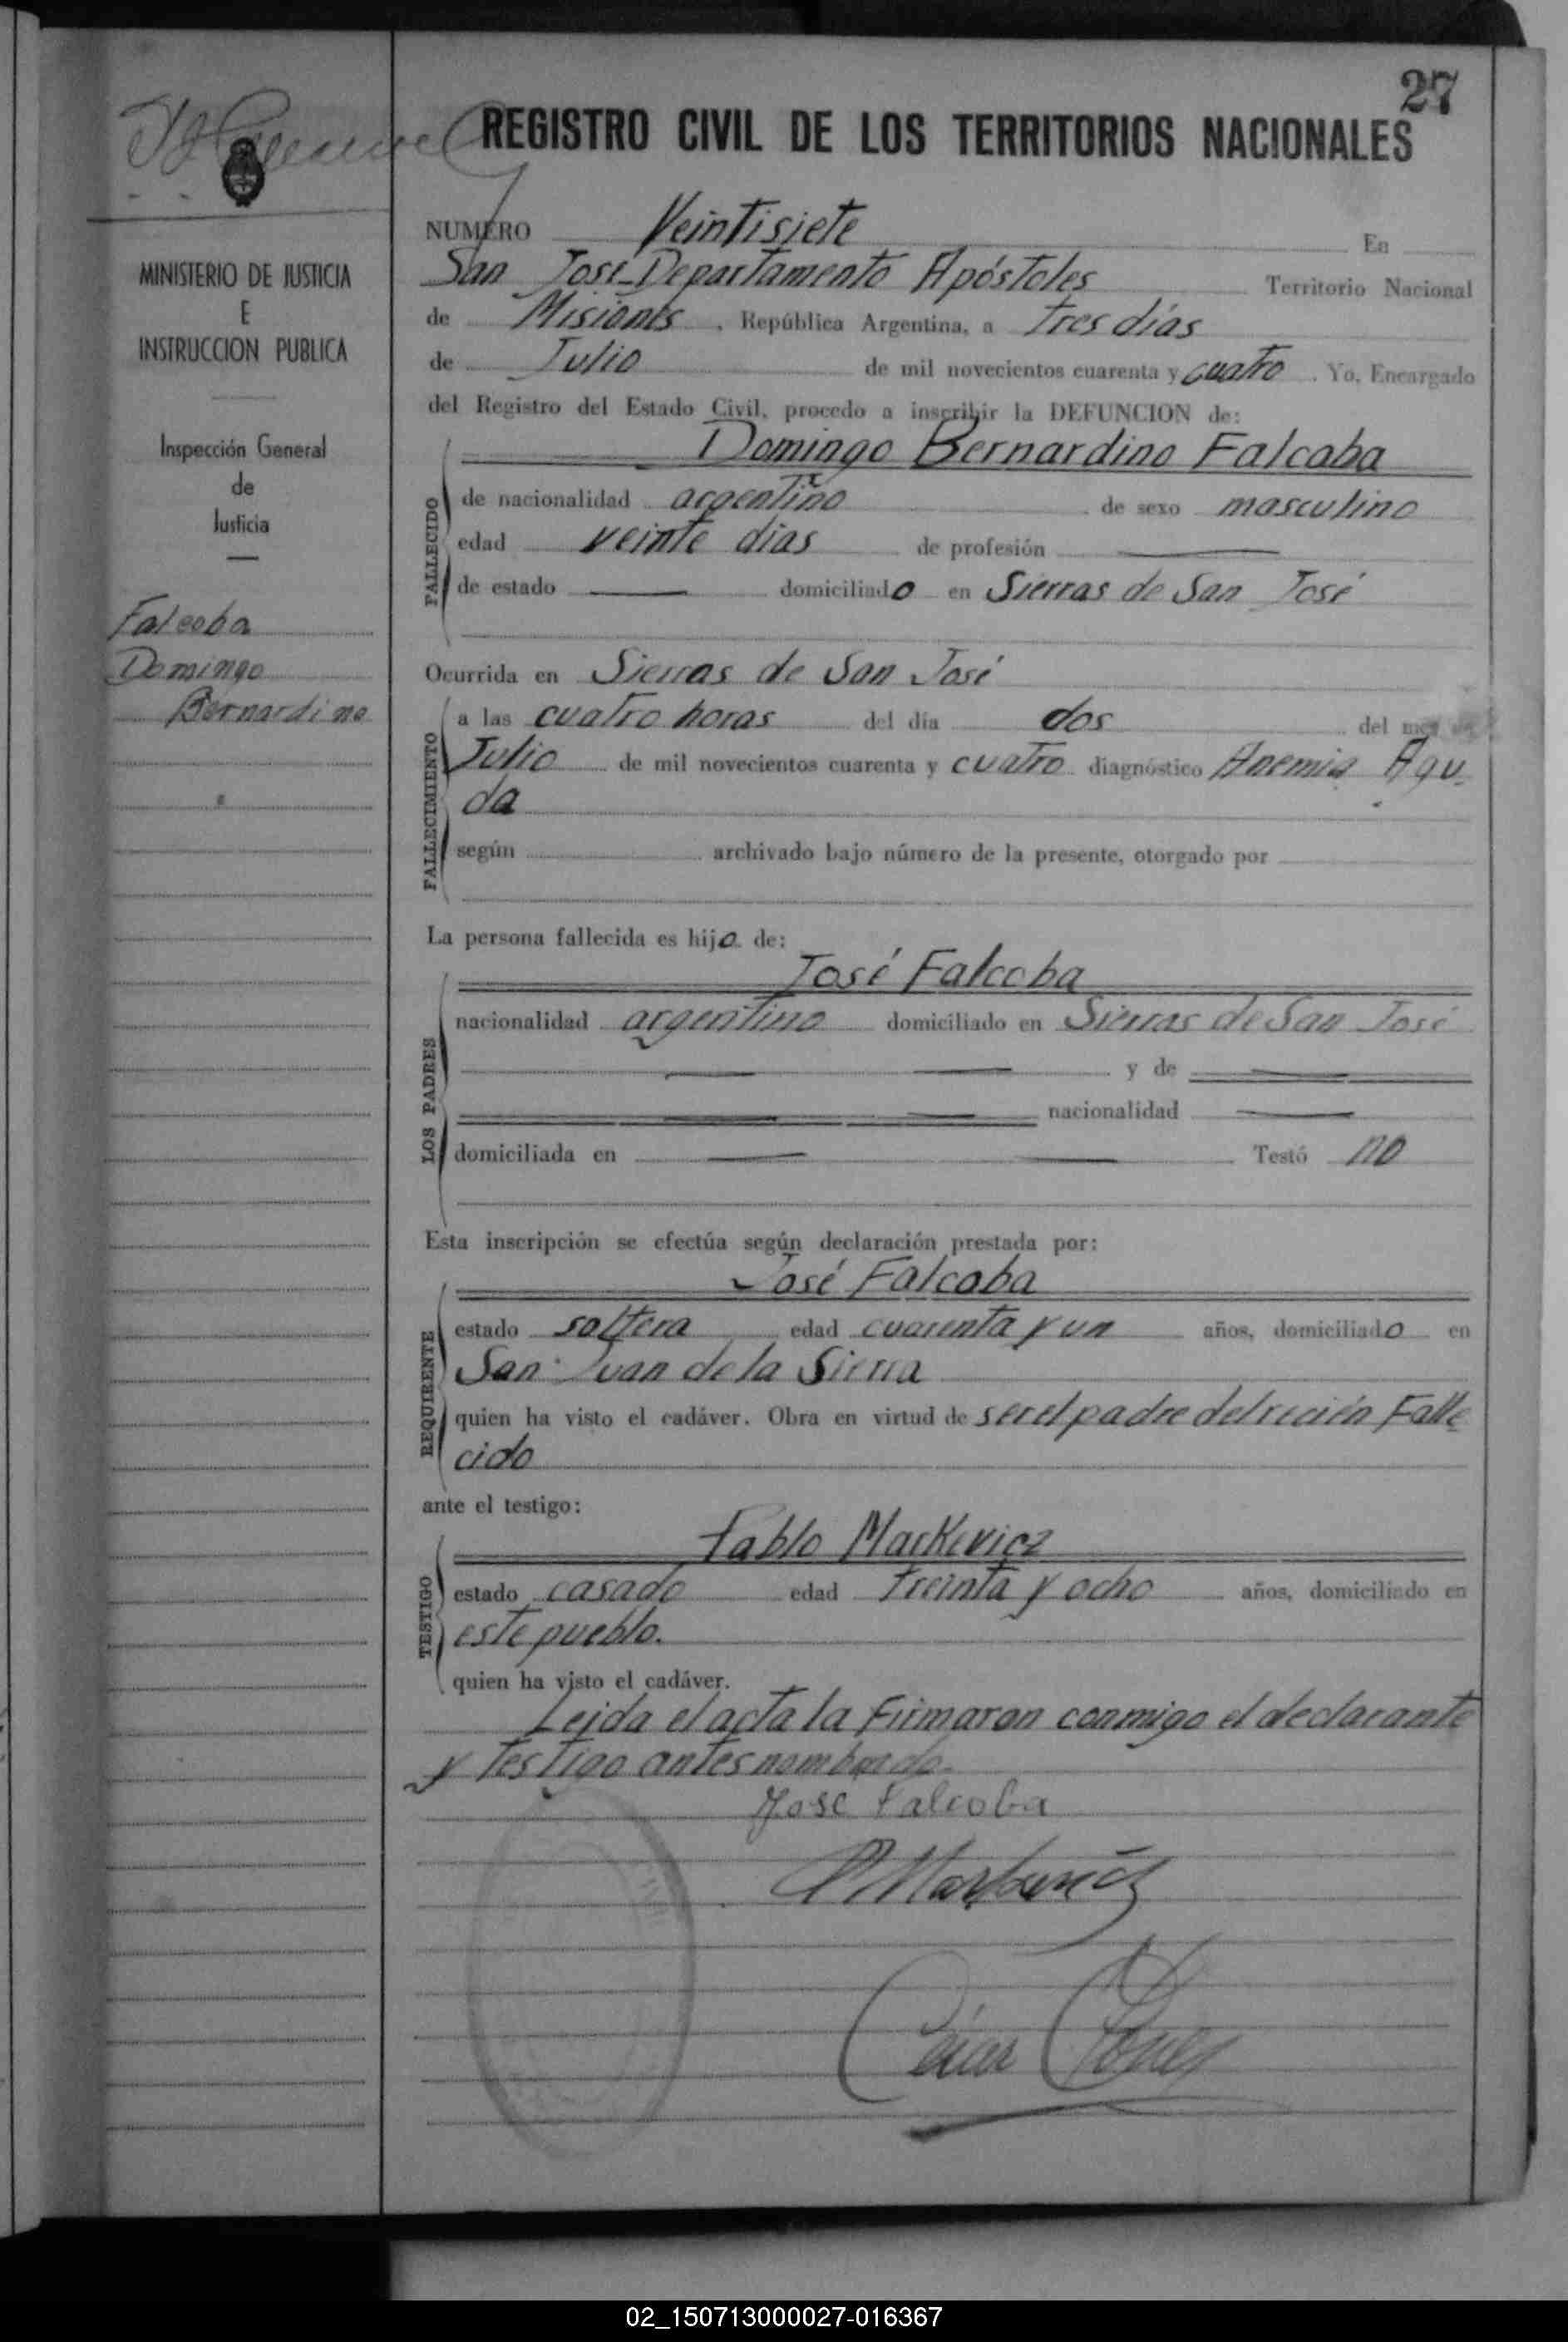 27
REGISTRO CIVIL DE LOS TERRITORIOS NACIONALES
MINISTERIO DE JUSTICIA
E
INSTRUCCION PUBLICA
Inspección General
de
Justicia
Falcoba
Domingo
Bernardino
NUMERO Veintisiete En
San José-Departamento Apóstoles Territorio Nacional
de Misiones, República Argentina, a tres días
de Julio de mil novecientos cuarenta y cuatro. Yo, Encargado
del Registro del Estado Civil, procedo a inscribir la DEFUNCION de:
Domingo Bernardino Falcoba
FALLECIDO
de nacionalidad argentino de sexo masculino
edad veinte dias de profesión —
de estado — domiciliado en Sierras de San José
Ocurrida en Sierras de San José
FALLECIMIENTO
a las cuatro horas del día dos del mes de
Julio de mil novecientos cuarenta y cuatro diagnóstico Anemia Agu-
da
según archivado bajo número de la presente, otorgado por
La persona fallecida es hijo de:
José Falcoba
LOS PADRES
nacionalidad argentino domiciliado en Sierras de San José
— — y de —
— — nacionalidad —
domiciliada en — — Testó no
Esta inscripción se efectúa según declaración prestada por:
José Falcoba
REQUIRENTE
estado soltera edad cuarenta y un años, domiciliado en
San Juan de la Sierra
quien ha visto el cadáver. Obra en virtud de ser el padre del recién Falle
cido
ante el testigo:
Pablo Markevicz
TESTIGO
estado casado edad treinta y ocho años, domiciliado en
este pueblo.
quien ha visto el cadáver.
Leida el acta la Firmaron conmigo el declarante
y testigo antes nombrado.
Jose Falcoba
P Markevicz
02_150713000027-016367